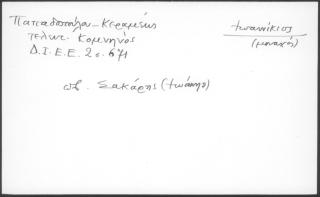 Παπαδοπούλου-Κεραμεύς
τελωτ. Κομνηνός
Δ.Ι.Ε.Ε. 2ο. 671
Ἰωαννίκιος
(μοναχός)
Σακάρης (Ἰωάννης)